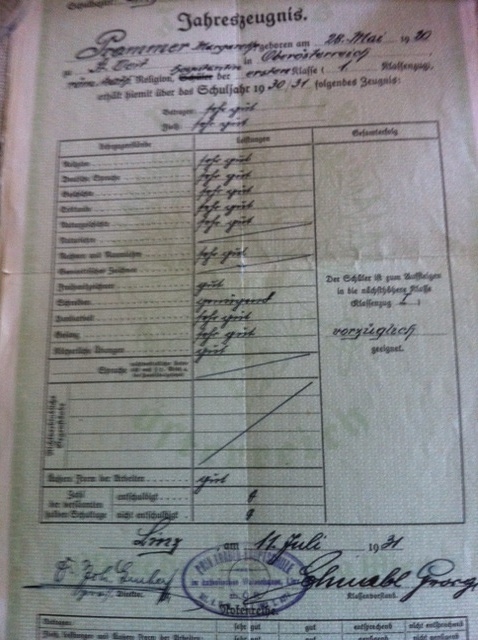 Jahreszeugnis.
Prammer Margarete geboren am 28. Mai 1920
zu St. Veit in Oberösterreich
röm. kath. Religion, Schüler der ersten Klasse ( 1. Klassenzug)
erhält hiemit über das Schuljahr 1930/31 folgendes Zeugnis:
Betragen: sehr gut
Fleiß: sehr gut
Lehrgegenstände Leistungen Gesamterfolg
Religion sehr gut
Deutsche Sprache sehr gut
Geschichte sehr gut
Erdkunde sehr gut
Naturgeschichte sehr gut
Naturlehre
Rechnen und Raumlehre sehr gut
Geometrisches Zeichnen
Freihandzeichnen gut
Schreiben genügend
Handarbeit sehr gut
Gesang sehr gut
Körperliche Übungen gut
Der Schüler ist zum Aufsteigen
in die nächsthöhere Klasse
Klassenzug I )
vorzüglich
geeignet.
Sprache
Nichtverbindliche Gegenstände
Äußere Form der Arbeiten gut
Zahl der versäumten halben Schultage
entschuldigt
nicht entschuldigt
Linz am 11. Juli 1931
Direktor. Schwabl Georg
Klassenvorstand.
Notenreihe.
sehr gut gut entsprechend nicht entsprechend